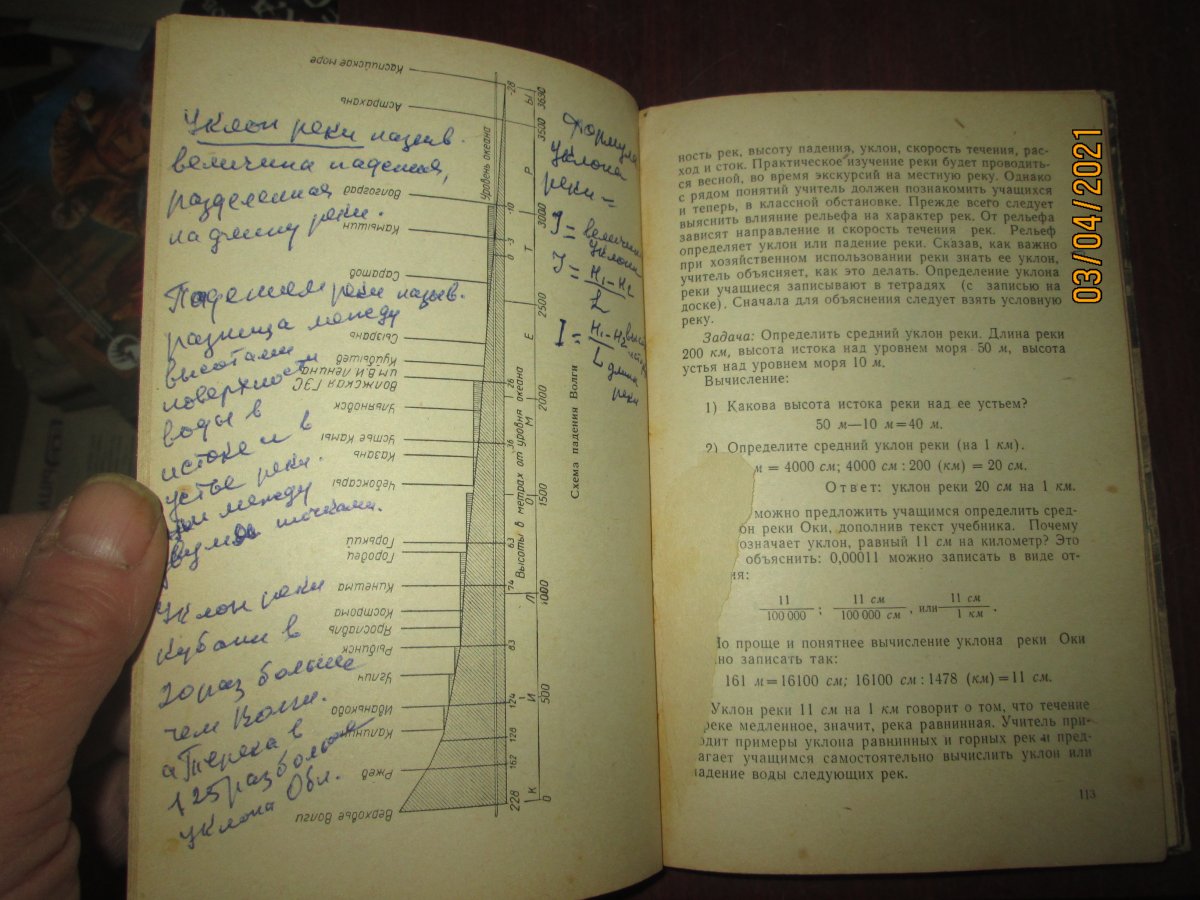 Уклон реки назыв.
величина падения,
разделенная
на длину реки.
Падением реки назыв.
разница между
высотами
поверхности
воды в
истоке и в
устье реки.
или между
двумя точками.
Уклон реки
Кубани в
20 раз больше
чем Волги.
а Терека в
125 раз больше
уклона Оби.
Формула
уклона
реки =
J = величина
уклона
J = H₁ - H₂
L
I = H₁ - H₂
L длина
реки
Каспийское море
Астрахань
Волгоград
Камышин
Саратов
Сызрань
Куйбышев
Волжская ГЭС
им. В.И. Ленина
Ульяновск
Устье Камы
Казань
Чебоксары
Горький
Городец
Кинешма
Кострома
Ярославль
Рыбинск
Углич
Иваньково
Калинин
Ржев
Верховье Волги
Уровень океана
Высоты в метрах от уровня океана
228 162 128 124 83 74 63 36 26 0 -3 -10 -28
0 500 1000 1500 2000 2500 3000 3500 3690
К И Л О М Е Т Р Ы
Схема падения Волги
ность рек, высоту падения, уклон, скорость течения, рас-
ход и сток. Практическое изучение реки будет проводить-
ся весной, во время экскурсий на местную реку. Однако
с рядом понятий учитель должен познакомить учащихся
и теперь, в классной обстановке. Прежде всего следует
выяснить влияние рельефа на характер рек. От рельефа
зависят направление и скорость течения рек. Рельеф
определяет уклон или падение реки. Сказав, как важно
при хозяйственном использовании реки знать ее уклон,
учитель объясняет, как это делать. Определение уклона
реки учащиеся записывают в тетрадях (с записью на
доске). Сначала для объяснения следует взять условную
реку.
Задача: Определить средний уклон реки. Длина реки
200 км, высота истока над уровнем моря 50 м, высота
устья над уровнем моря 10 м.
Вычисление:
1) Какова высота истока реки над ее устьем?
50 м—10 м=40 м.
2) Определите средний уклон реки (на 1 км).
м = 4000 см; 4000 см : 200 (км) = 20 см.
Ответ: уклон реки 20 см на 1 км.
можно предложить учащимся определить сред-
н реки Оки, дополнив текст учебника. Почему
означает уклон, равный 11 см на километр? Это
объяснить: 0,00011 можно записать в виде от-
ия:
11/100 000 ; 11 см/100 000 см , или 11 см/1 км .
Но проще и понятнее вычисление уклона реки Оки
но записать так:
161 м=16100 см; 16100 см : 1478 (км)=11 см.
Уклон реки 11 см на 1 км говорит о том, что течение
реке медленное, значит, река равнинная. Учитель при-
одит примеры уклона равнинных и горных рек и пред-
агает учащимся самостоятельно вычислить уклон или
адение воды следующих рек.
113
03/04/2021